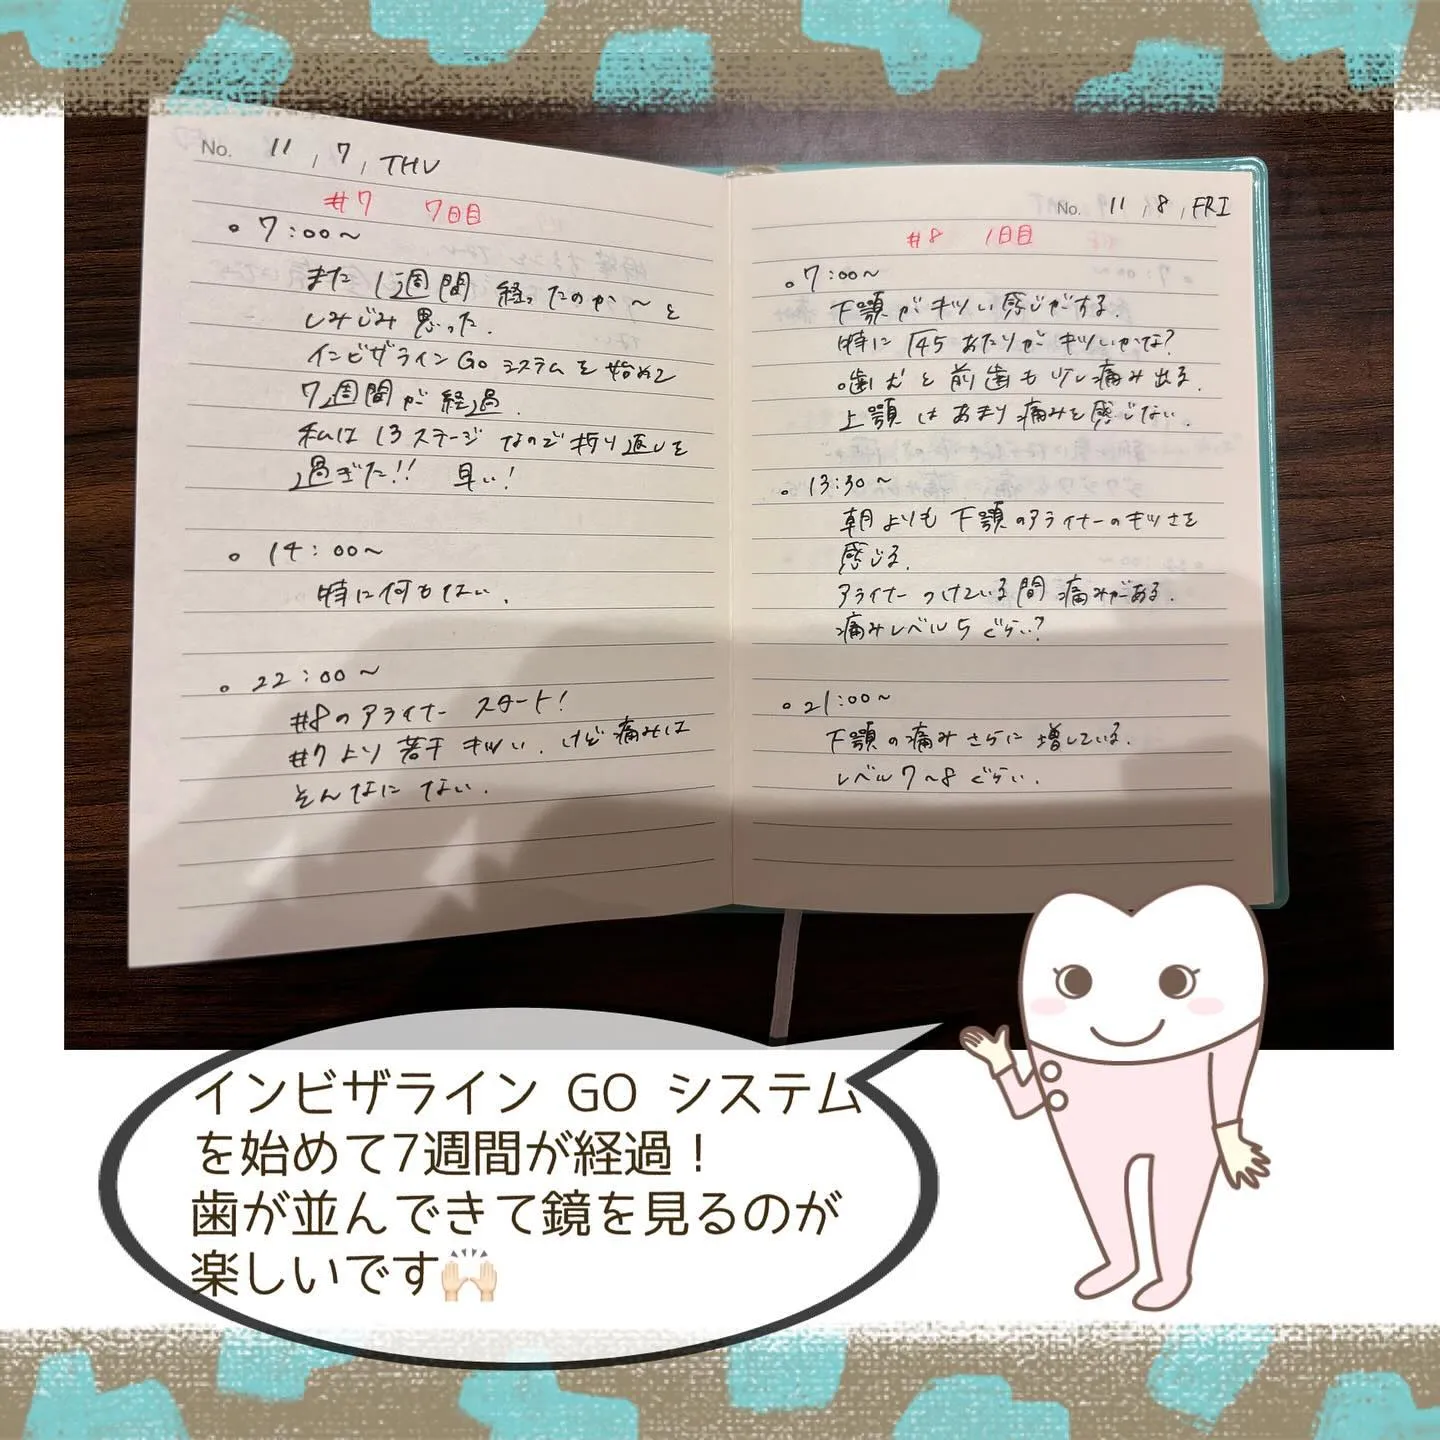 No. 11, 7, THU
#7 7日目
○ 7:00〜
また1週間経ったのか〜と
しみじみ思った.
インビザラインGoシステムを始めて
7週間が経過.
私は13ステージなので折り返しを
過ぎた!! 早い!
○ 14:00〜
特に何もない.
○ 22:00〜
#8のアライナースタート!
#7より若干キツい.けど痛みは
そんなにない.
No. 11, 8, FRI
#8 1日目
○ 7:00〜
下顎がキツい感じがする.
特に 45あたりがキツいかな?
前歯も少し痛み出る.
上顎はあまり痛みを感じない.
○ 13:30〜
朝よりも下顎のアライナーのキツさを
感じる.
アライナーつけている間痛みがある.
痛みレベル5ぐらい?
○ 21:00〜
下顎の痛みさらに増している.
レベル7〜8ぐらい.
インビザライン GO システム
を始めて7週間が経過！
歯が並んできて鏡を見るのが
楽しいです🙌🏻